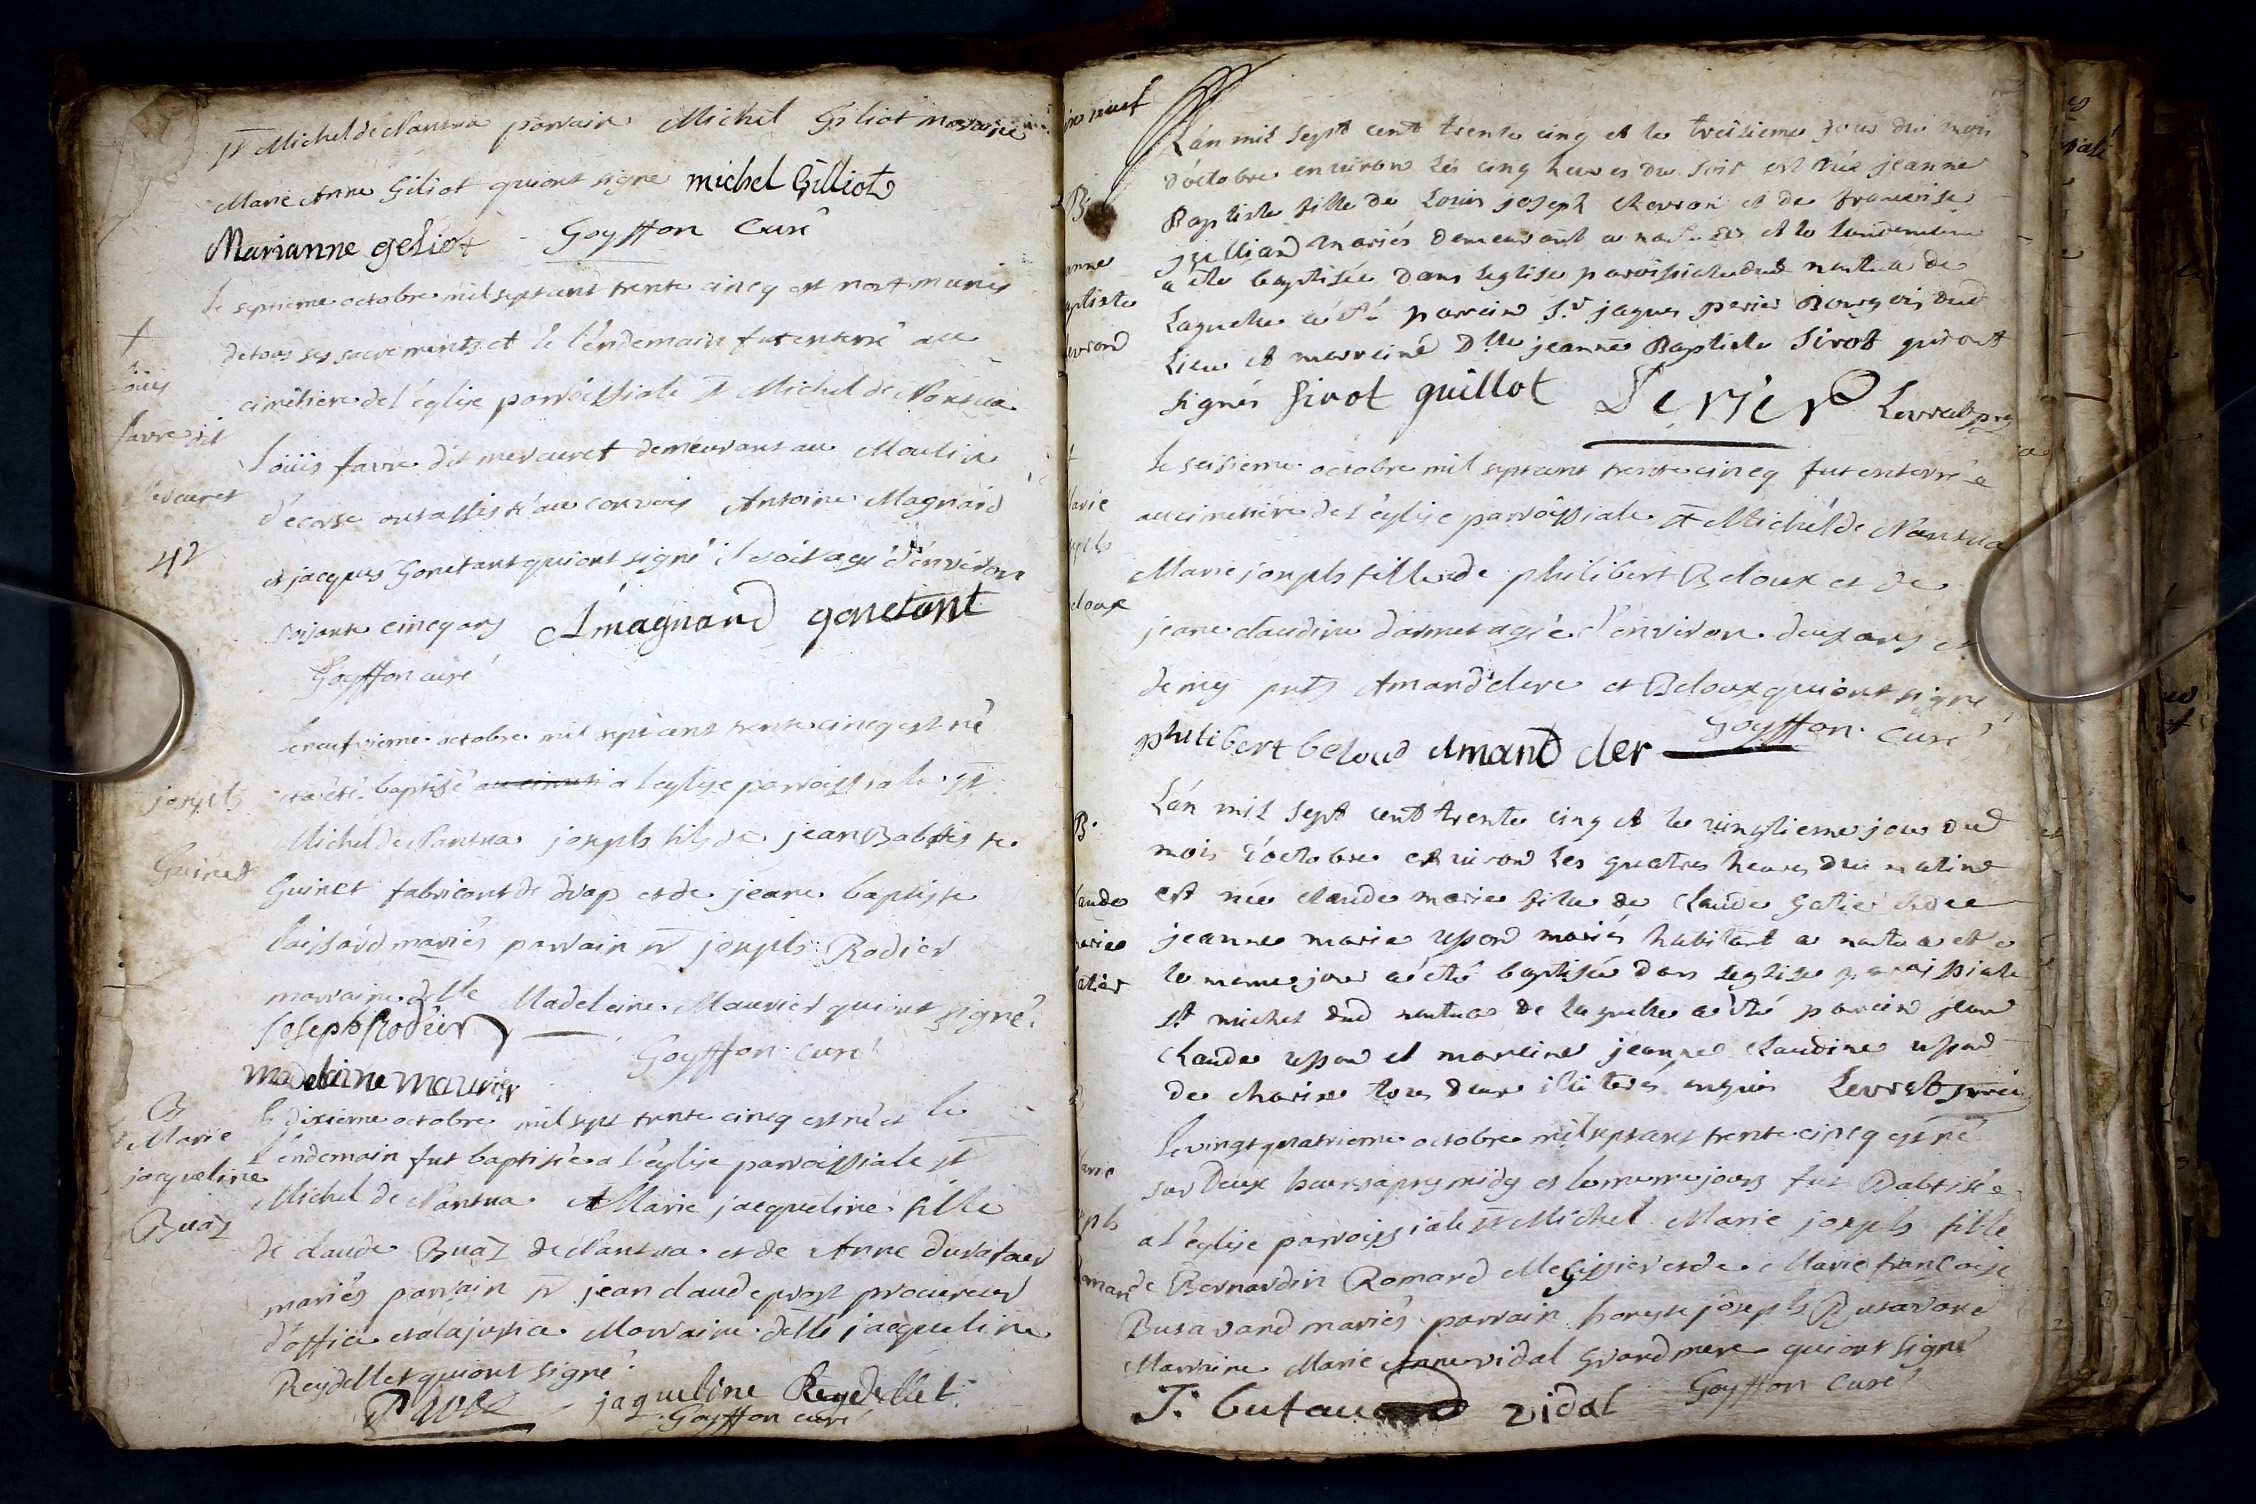 St Michel de Nantua parrain Michel Giliot maraine
Marie Anne Giliot quiont signe michel Gilliot
Marianne geliot Goyffon Curé
le septieme octobre mil septcent trente cincq est mort munis
de tous ses sacrements et le l'endemain fut enterré au
cimétiere de l'église parroissiale St Michel de Nantua
Loüis favre dit mercuret demeurant au Moulin
ont assisté au convois Antoine Magnard
et jacques Gonetant quiont signé il étoit agé d'environ
soixante cincq ans A magnand gonetant
Goyffon curé
+
Loüis
favre dit
mercuret
42
le neufvieme octobre mil septcent trente cincq est né
et a été baptisé a l'eglise parroissiale St
Michel de Nantua joseph fils de jean Babtiste
Guinet fabricant de drap et de jeane baptiste
mariés parrain Sr joseph Rodier
marraine dlle Madeleine Maurier quiont signé
joseph Rodier
Goyffon curé
madelaine maurier
joseph
Guinet
le dixieme octobre mil sept trente cincq est né et le
l'endemain fut baptisée a l'église parroissiale St
Michel de Nantua Marie jacqueline fille
de claude Buaz de Nantua et de Anne
mariés parrain Sr jean claude prost procureur
d'office et a la justice Marraine dlle jacqueline
Reydellet quiont signé
jaqueline Reydellet
Goyffon curé
B
Marie
jacqueline
Buaz
neuf
L'an mil sept cent trente cinq et le treisieme jour du mois
d'octobre environ les cinq heures du soir est née jeanne
Baptiste fille de Louis joseph chevron et de francoise
jullian mariés demeurant a nantua et le lendemain
a été baptisée dans l'eglise paroissiale dud nantua de
laquelle a été parrain Sr jaques perier Bourgois dud
lieu et marreine Dlle jeanne Baptiste Sirot qui ont
signés Sirot guillot Perier Levrat
B
anne
aptiste
evrond
le seisieme octobre mil septcent trente cincq fut enterré e
au cimetiere de l'église parroissiale St Michel de Nantua
Marie joseph fille de philibert Beloux et de
jeane claudine agée d'environ deux ans et
demis pnts Amand clerc et Beloux quiont signé
philibert beloud Amand cler Goyffon Curé
arie
seph
eloux
L'an mil sept cent trente cinq et le vingtieme jour dud
mois d'octobre environ les quatres heures du matin
est née claude marie fille de Claude Gatier et de
jeanne marie mariés habitant a nantua et
le meme jour a été baptisée dans l'eglise paroissiale
St michel dud nantua de laquelle a été parrain jean
Claude et marreine jeanne Claudine
de charix tous deux enquis Levrat
B.
laude
marie
atier
le vingt quatrieme octobre mil septcent trente cincq est né
sur deux heures apres midy et le meme jours fut Babtisée
a l'église parroissiale St Michel Marie joseph fille
de Bernardin Romand Megissier et de Marie françoise
Butavand mariés parrain honeste joseph Butavand
Marraine Marie Anne vidal Grandmere quiont signé
J. butavand vidal Goyffon Curé
arie
eph
omand